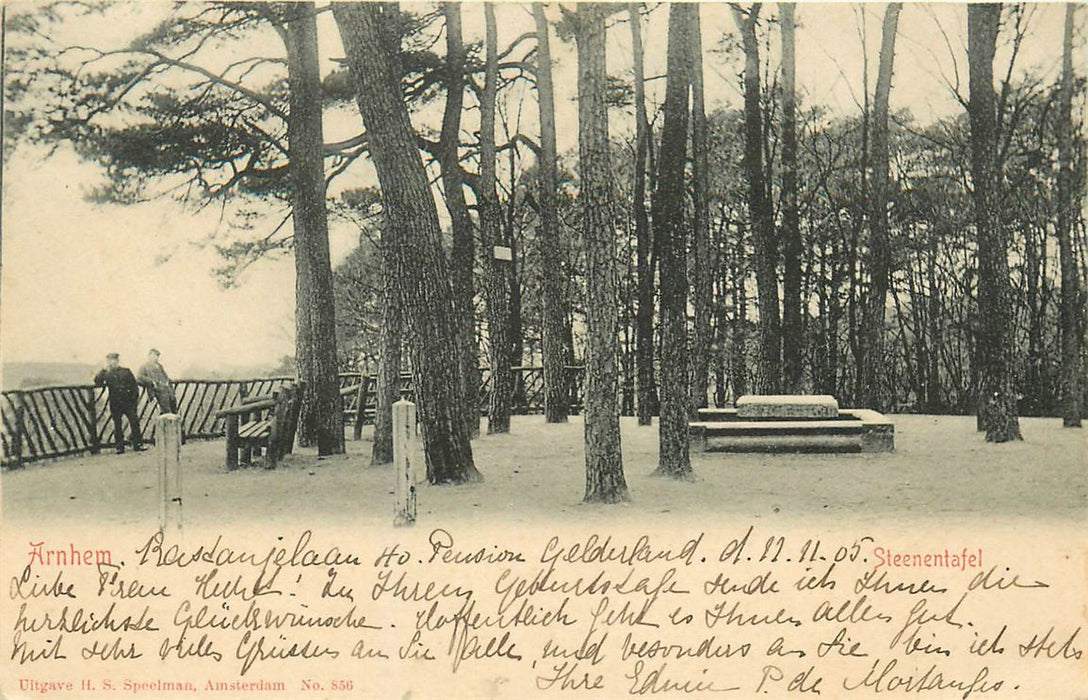 Arnhem. Kastanjelaan 40. Pension Gelderland. d. 11.11.05. Steenentafel
Liebe Frau Hecht! Zu Ihrem Geburtstage sende ich Ihnen die
herzlichste Glückwünsche. Hoffentlich geht es Ihnen allen gut.
Mit sehr viele Grüssen an Sie alle, und besonders an Sie bin ich stets
Uitgave H. S. Speelman, Amsterdam No. 856 Ihre Edwin P. de